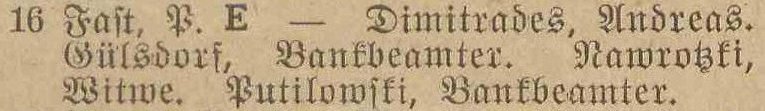 16 Fast, P. E — Dimitrades, Andreas.
Gülsdorf, Bankbeamter. Nawrotzki,
Witwe. Putilowski, Bankbeamter.